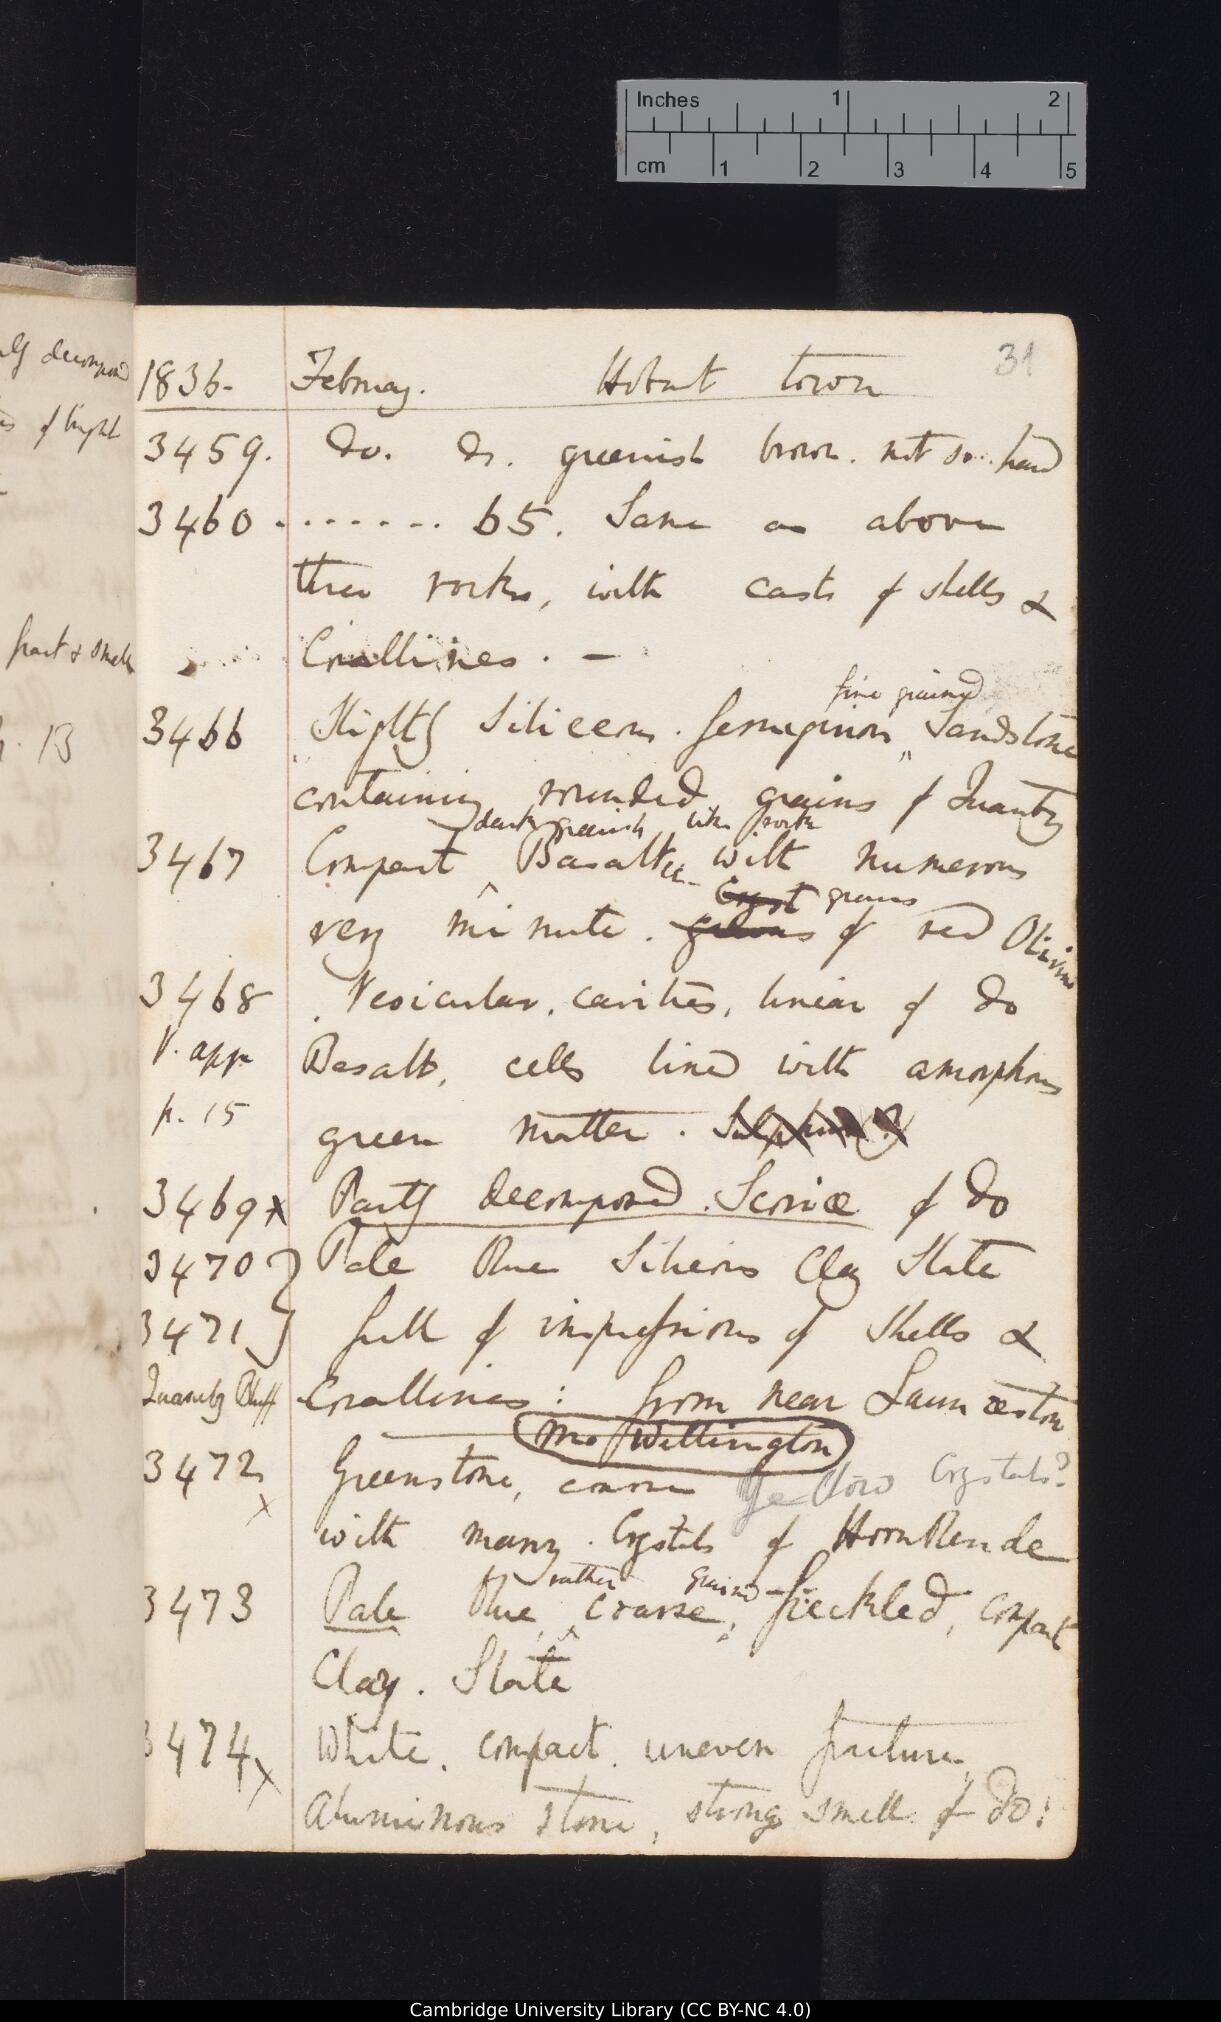 Inches 1 2
cm 1 2 3 4 5
ly decomposed
of bright
fract & smell
13
31
1836. February. Hobart town
3459. Do. Do. greenish brown. not so hard
3460 . . . . . . . . 65. Same as above
three rocks, with casts of shells &
Corallines. —
fine grained
3466 Slightly Siliceous. ferruginous Sandstone
containing rounded grains of Quartz
dark greenish like rock
3467 Compact Basaltic with numerous
Cryst grains
very minute. grains of red Olivine
3468 Vesicular. cavities, linear of do
V. app Basalt, cells lined with amorphous
p. 15 green matter. Sulphur (?)
3469 x Partly decomposed. Scoriæ of do
3470 } Pale Blue Siliceous Clay Slate
3471 } full of impressions of Shells &
Quartz Bluff Corallines: from near Launceston
Mt Wellington
3472 x Greenstone, coarse Yellow Crystals?
with many. Crystals of HornBlende
rather grained
3473 Pale Blue, coarse, freckled, compact
Clay. Slate
3474 x White. compact. uneven fracture,
Aluminous stone, strong smell of do!
Cambridge University Library (CC BY-NC 4.0)